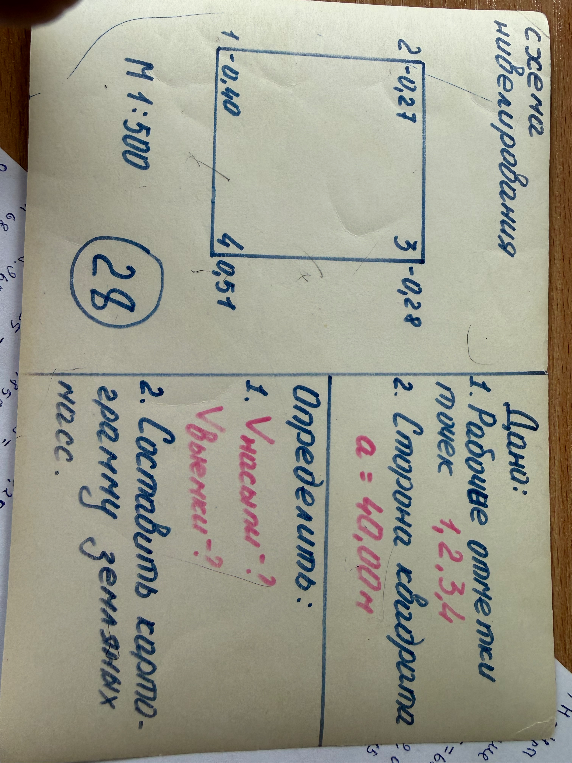 схема
нивелирования
2 -0,27
3 -0,28
1. -0,40
4 0,51
М 1:500
28
Дано:
1. Рабочие отметки
точек 1,2,3,4
2. Сторона квадрата
а = 40,00м
Определить:
1. Vнасыпи-?
Vвыемки-?
2. Составить карто-
грамму земляных
масс.